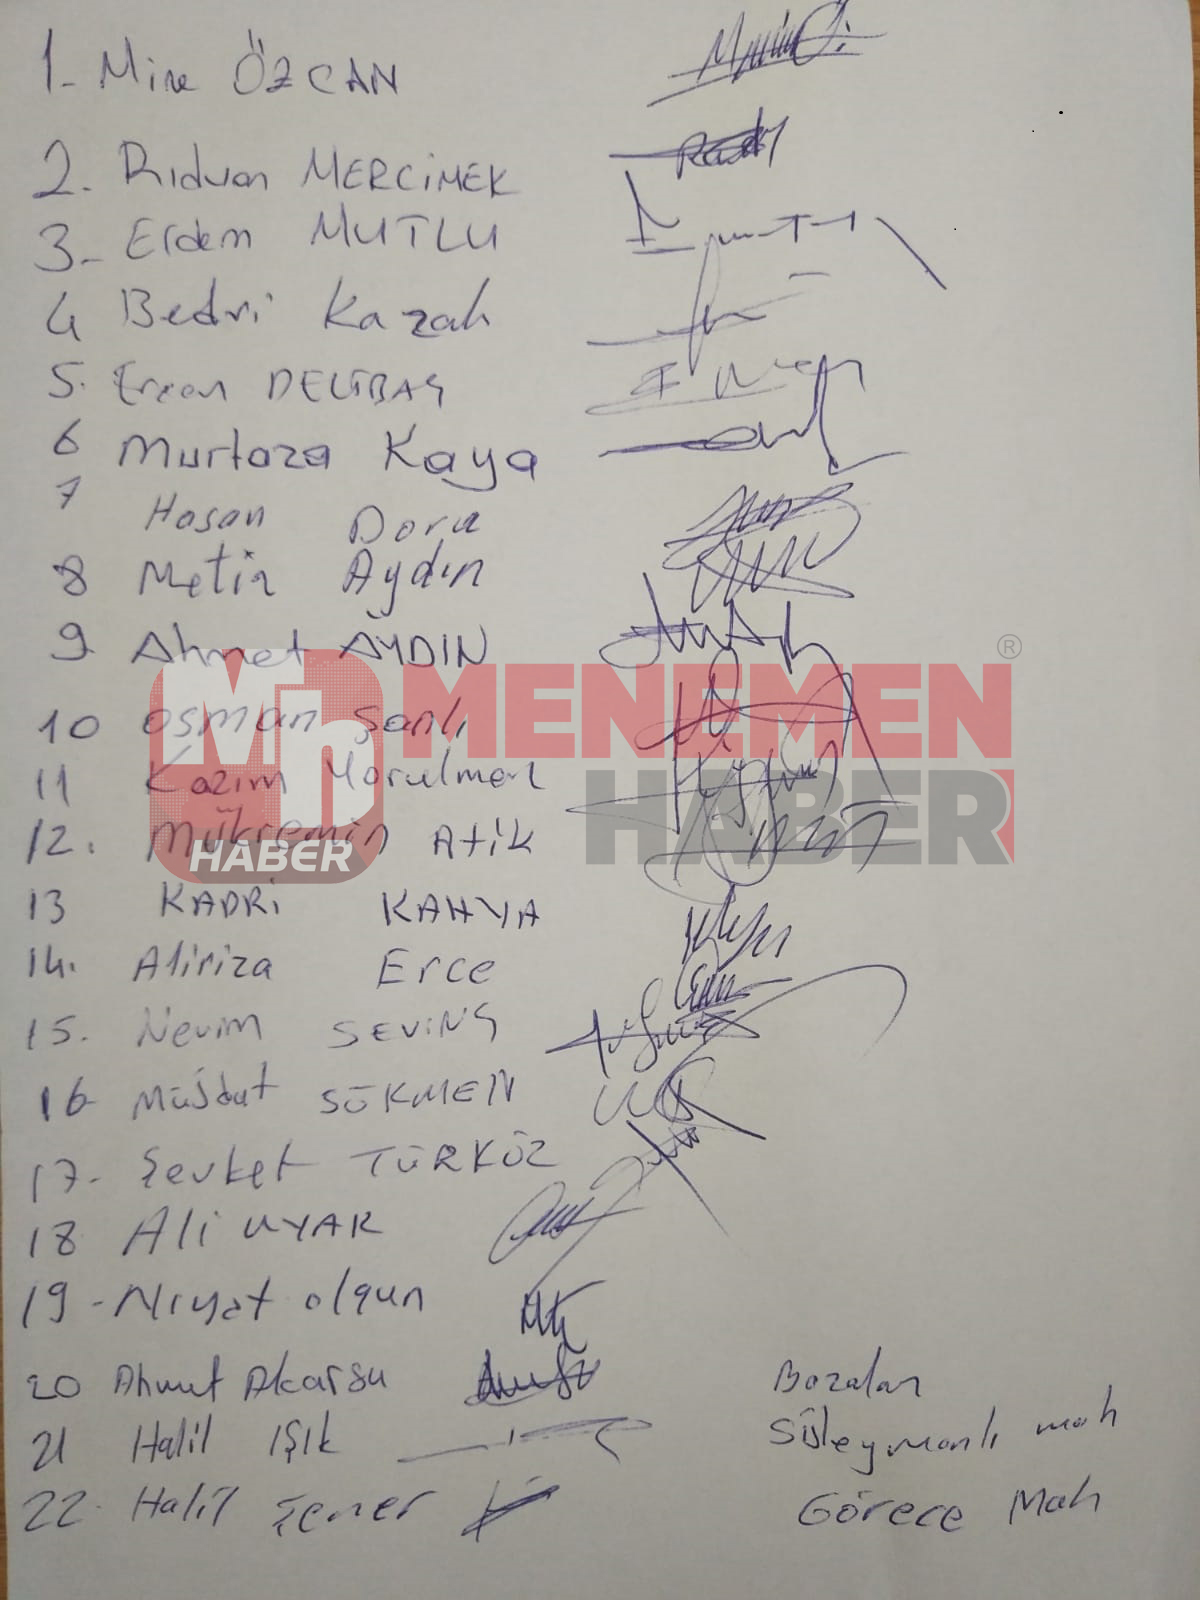 1- Mine ÖZCAN
2. Rıdvan MERCİMEK
3- Erdem MUTLU
4 Bedri Kazak
5. Ercan DELİBAŞ
6 Murtaza Kaya
7 Hasan Dora
8 Metin Aydın
9 Ahmet AYDIN
MENEMEN ®
10 osman Şanlı
11 Kazım Yorulmaz
HABER
12. Mükremin Atik
Mh HABER
13 KADRİ KAHYA
14. Aliriza Erce
15. Nevim SEVİNÇ
16- SÖKMEN
17- Şevket TÜRKÖZ
18 Ali UYAR
19 - Niyat olgun
20 Ahmet Akarsu Bozalan
21 Halil IŞIK Süleymanlı mah
22- Halil Şener Görece Mah